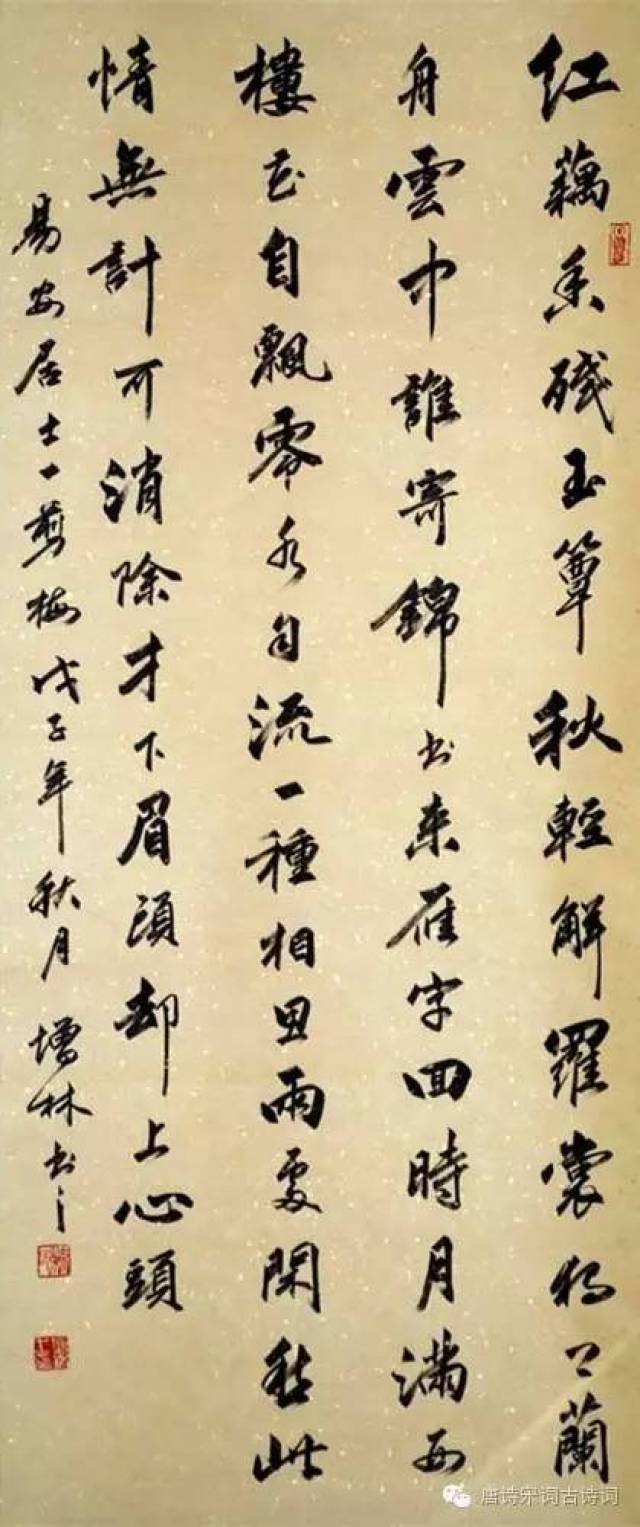 红藕香殘玉簟秋輕解羅裳獨上蘭
舟雲中誰寄錦書來雁字回時月滿西
樓花自飄零水自流一種相思兩處閑愁此
情無計可消除才下眉頭却上心頭
易安居士一剪梅戊子年秋月增林書
唐诗宋词古诗词